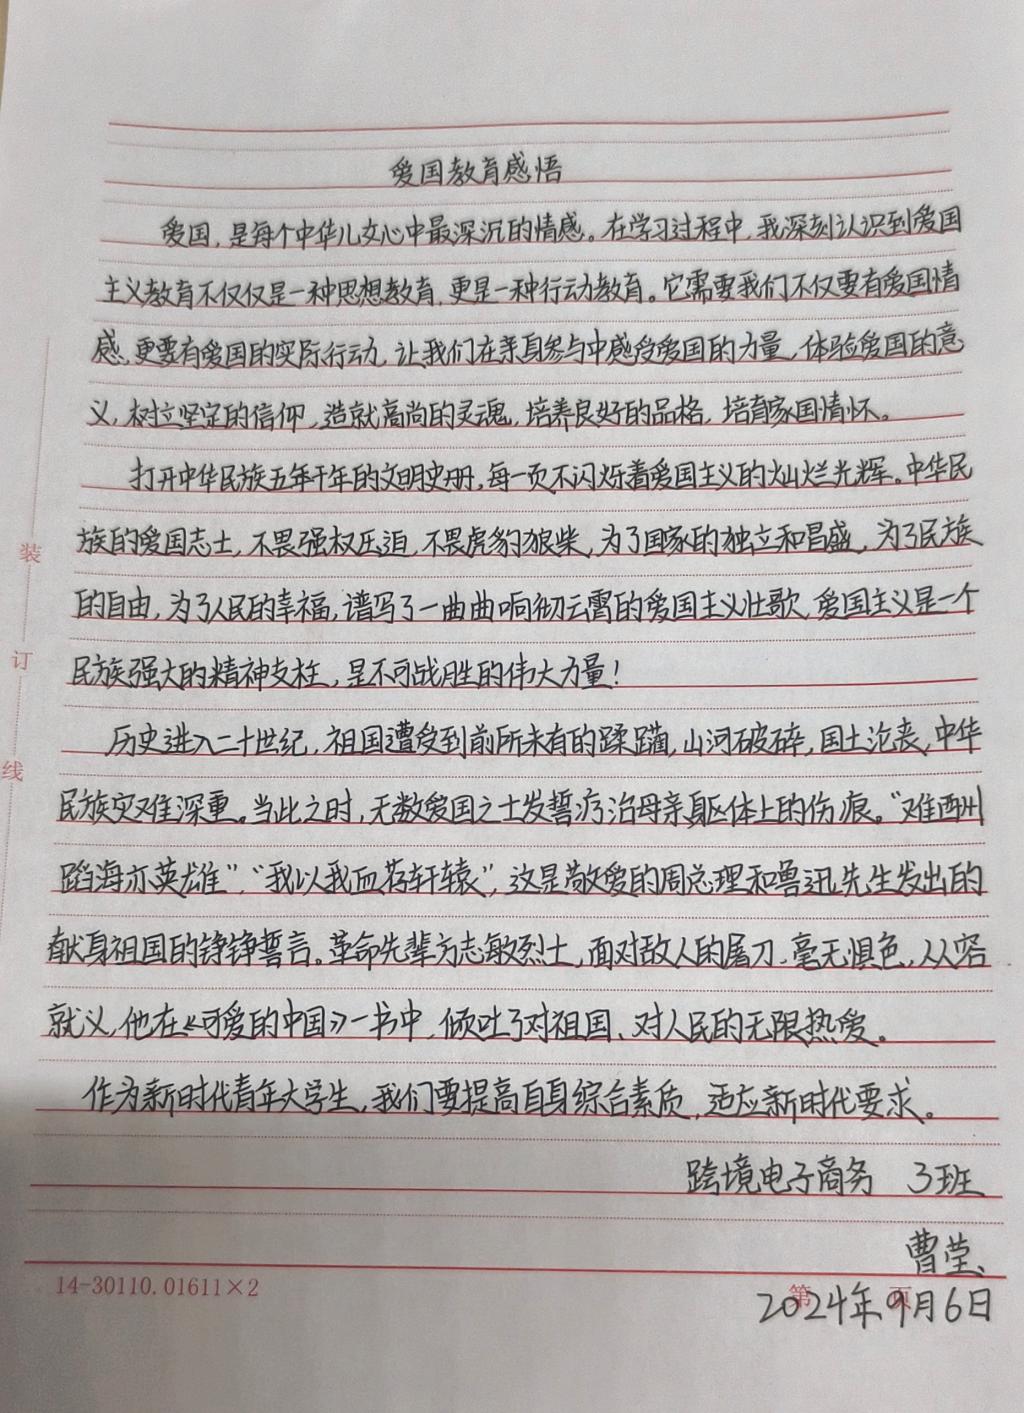 爱国教育感悟
爱国，是每个中华儿女心中最深沉的情感。在学习过程中，我深刻认识到爱国
主义教育不仅仅是一种思想教育，更是一种行动教育。它需要我们不仅要有爱国情
感，更要有爱国的实际行动，让我们在亲身参与中感受爱国的力量，体验爱国的意
义，树立坚定的信仰，造就高尚的灵魂，培养良好的品格，培育家国情怀。
打开中华民族五年千年的文明史册，每一页不闪烁着爱国主义的灿烂光辉。中华民
族的爱国志士，不畏强权压迫，不畏虎豹狼柴，为了国家的独立和昌盛，为了民族
的自由，为了人民的幸福，谱写了一曲曲响彻云霄的爱国主义壮歌，爱国主义是一个
民族强大的精神支柱，是不可战胜的伟大力量！
历史进入二十世纪，祖国遭受到前所未有的蹂躏，山河破碎，国土沦丧，中华
民族灾难深重。当此之时，无数爱国之士发誓疗治母亲躯体上的伤痕。“难酬
蹈海亦英雄”，“我以我血荐轩辕”，这是敬爱的周总理和鲁迅先生发出的
献身祖国的铮铮誓言。革命先辈方志敏烈士，面对敌人的屠刀，毫无惧色，从容
就义，他在《可爱的中国》一书中，倾吐了对祖国、对人民的无限热爱。
作为新时代青年大学生，我们要提高自身综合素质，适应新时代要求。
跨境电子商务 3班
曹莹、
2024年9月6日
装
订
线
14-30110.01611×2
第 页